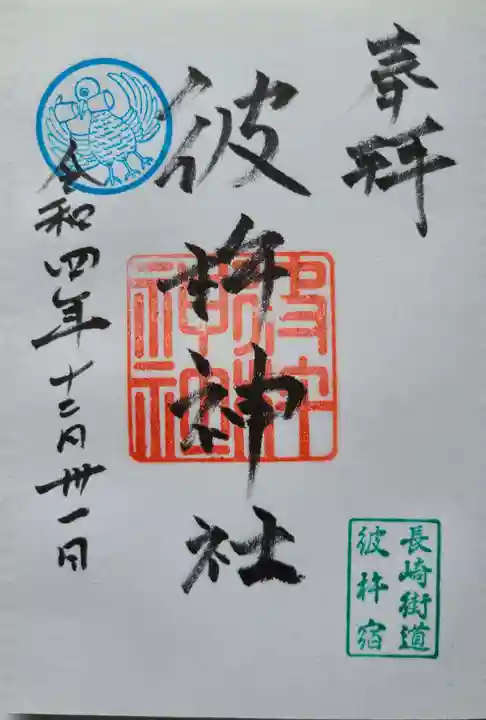 奉拝
彼杵神社
彼杵神社
令和四年十二月卅一日
長崎街道
彼杵宿